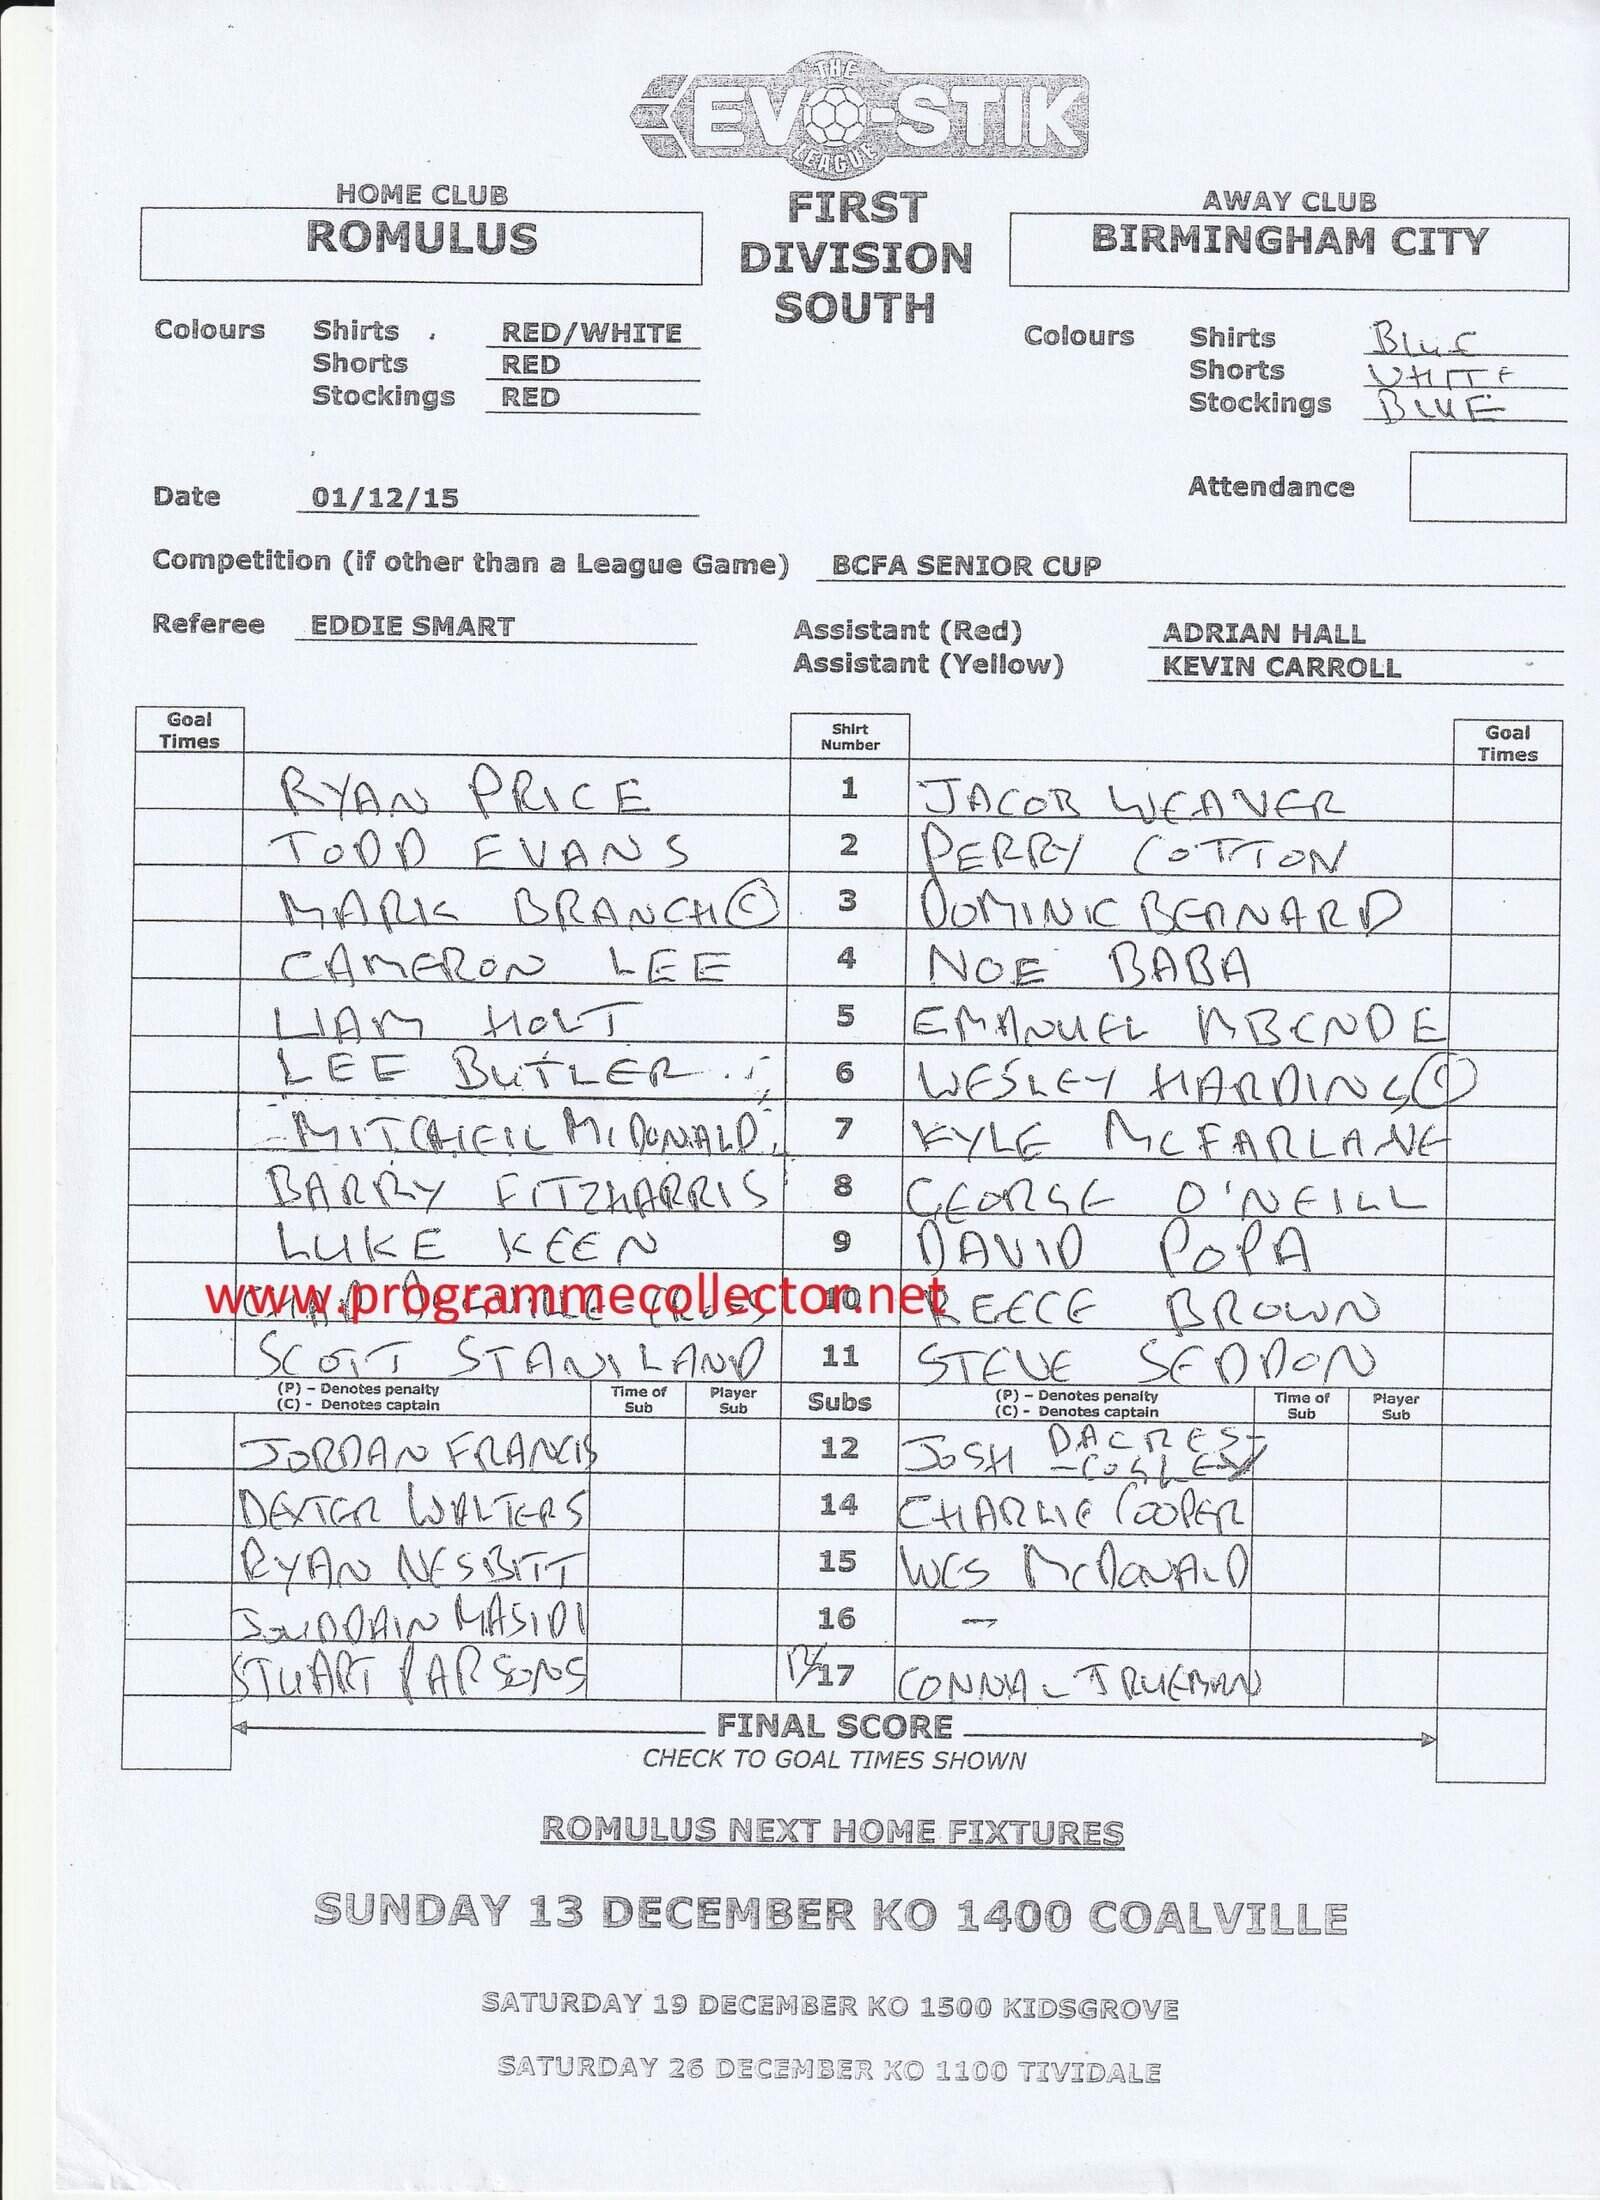 THE
EVO-STIK
LEAGUE
HOME CLUB
ROMULUS
FIRST
DIVISION
SOUTH
AWAY CLUB
BIRMINGHAM CITY
Colours Shirts RED/WHITE
Shorts RED
Stockings RED
Colours Shirts BLUE
Shorts WHITE
Stockings BLUE
Date 01/12/15
Attendance
Competition (if other than a League Game) BCFA SENIOR CUP
Referee EDDIE SMART
Assistant (Red) ADRIAN HALL
Assistant (Yellow) KEVIN CARROLL
Goal Times Shirt Number Goal Times
RYAN PRICE 1 JACOB WEAVER
TODD EVANS 2 PERRY COTTON
MARK BRANCH (C) 3 DOMINIC BERNARD
CAMERON LEE 4 NOE BABA
LIAM HOLT 5 EMANUEL MBENDE
LEE BUTLER 6 WESLEY HARDING (C)
MITCHELL MCDONALD 7 KYLE MCFARLANE
BARRY FITZHARRIS 8 GEORGE O'NEILL
LUKE KEEN 9 DAVID POPA
www.programmecollector.net
10 REECE BROWN
SCOTT STANILAND 11 STEVE SEDDON
(P) - Denotes penalty Time of Sub Player Sub Subs (P) - Denotes penalty Time of Sub Player Sub
(C) - Denotes captain (C) - Denotes captain
JORDAN FRANCIS 12 JOSH DACRES-
-COGLEY
DEXTER WALTERS 14 CHARLIE COOPER
RYAN NESBITT 15 WES MCDONALD
JOURDAIN MASIDI 16 -
STUART PARSONS 17 CONNAL TRUEMAN
FINAL SCORE
CHECK TO GOAL TIMES SHOWN
ROMULUS NEXT HOME FIXTURES
SUNDAY 13 DECEMBER KO 1400 COALVILLE
SATURDAY 19 DECEMBER KO 1500 KIDSGROVE
SATURDAY 26 DECEMBER KO 1100 TIVIDALE